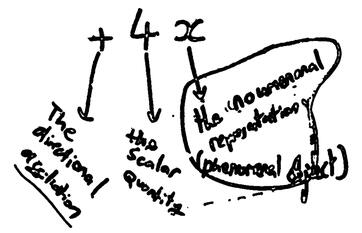 + 4 x
The
directional
affiliation
the
scalar
quantity
the noumenal
representation
(phenomenal object)